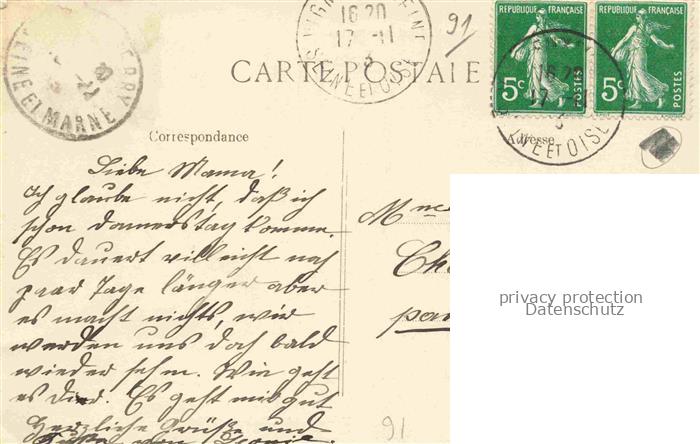 RÉPUBLIQUE FRANÇAISE RÉPUBLIQUE FRANÇAISE
5c POSTES 5c POSTES
16 20
17 - 11
SEINE ET OISE
16 20
17 -
NE ET OISE
SEINE ET MARNE
91
CARTE POSTALE
Correspondance
Adresse
Liebe Mama!
Ich glaube nicht, daß ich
schon Donnerstag komme.
Es dauert vielleicht noch
paar Tage länger aber
es macht nichts, wir
werden uns doch bald
wieder sehn. Wie geht
es Dir? Es geht mir gut
Herzliche Grüße und
Küße von
Mme
Che
par
privacy protection
Datenschutz
91